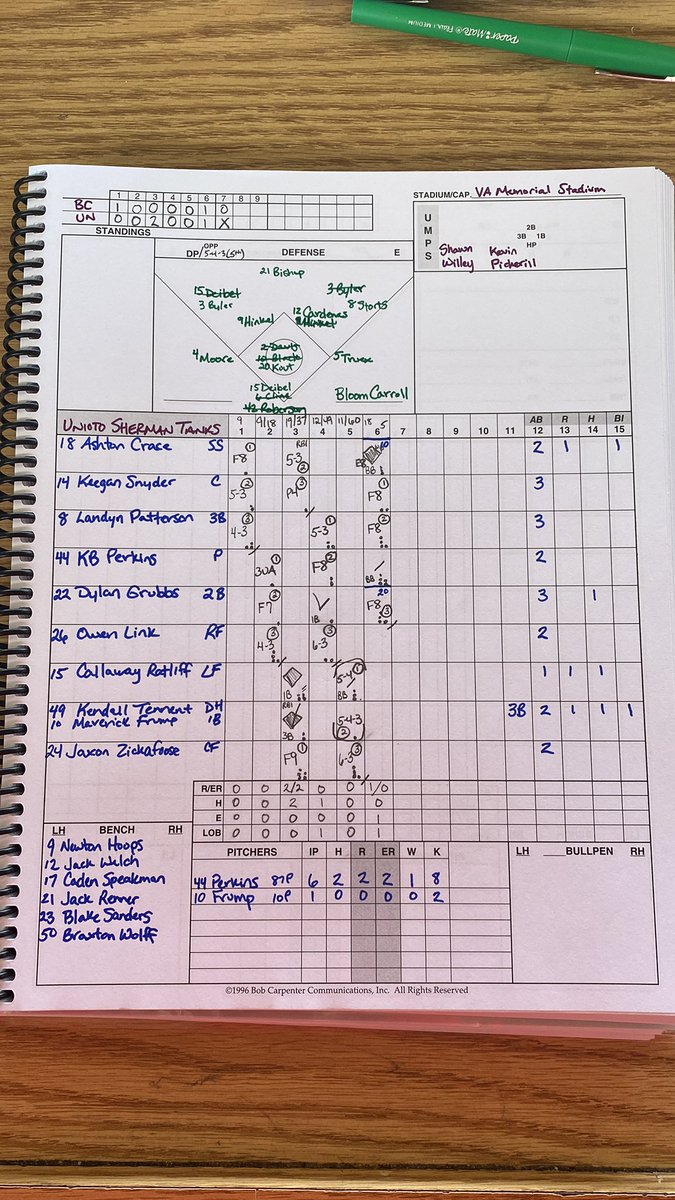 Paper Mate Flair® Medium
STADIUM/CAP. VA Memorial Stadium
1 2 3 4 5 6 7 8 9
BC 1 0 0 0 0 1 0
UN 0 0 2 0 0 1 X
STANDINGS
UMPS
2B
3B 1B
HP
Shawn Willey
Kevin Pickerill
OPP
DP/5-4-3(5th) DEFENSE E
21 Bishop
15 Deibel
3 Byler
3 Byler
8 Storts
9 Hinkel
12 Cardenas
4 Moore
5 Truex
10 Black
20 Kout
15 Deibel
6 Cline
42 Roberson
Bloom Carroll
UNIOTO SHERMAN TANKS
9 9/18 19/37 12/49 11/60 18
1 2 3 4 5 6 7 8 9 10 11 12 13 14 15
AB R H BI
18 Ashton Crace SS F8 5-3 RBI BB 2 1 1
14 Keegan Snyder C 5-3 P4 F8 3
8 Landyn Patterson 3B 4-3 5-3 F8 3
44 KB Perkins P 3UA F8 BB 2
22 Dylan Grubbs 2B F7 1B F8 3 1
26 Owen Link RF 4-3 6-3 2
15 Callaway Ratliff LF 1B BB 5-4 1 1 1
49 Kendell Tennent DH RBI 3B 5-4-3 3B 2 1 1 1
10 Maverick Frump 1B
24 Jaxon Zickafoose CF F9 6-3 2
R/ER 0 0 2/2 0 0 1/0
H 0 0 2 1 0 0
E 0 0 0 0 0 1
LOB 0 0 0 1 0 1
LH BENCH RH
9 Newton Hoops
12 Jack Welch
17 Caden Speakman
21 Jack Renner
23 Blake Sanders
50 Braxton Wolff
PITCHERS IP H R ER W K
44 Perkins 87P 6 2 2 2 1 8
10 Frump 10P 1 0 0 0 0 2
LH BULLPEN RH
©1996 Bob Carpenter Communications, Inc. All Rights Reserved